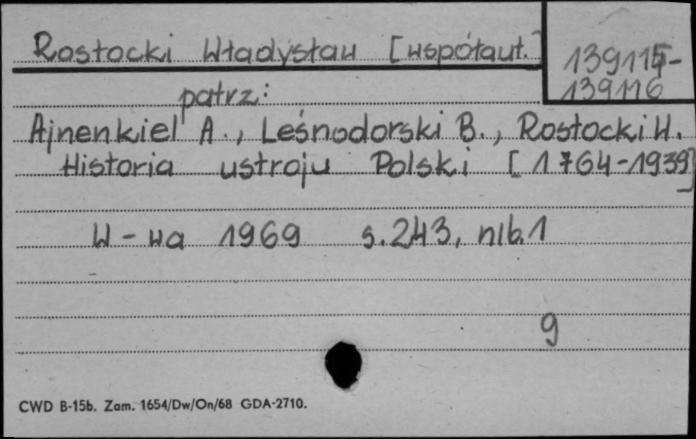 Rostocki Władysław [współaut.]
139115-
139116
patrz:
Ajnenkiel A., Leśnodorski B., Rostocki W.
Historia ustroju Polski [1764-1939]
W-wa 1969 s.243, nlb.1
9
CWD B-15b. Zam. 1654/Dw/On/68 GDA-2710.